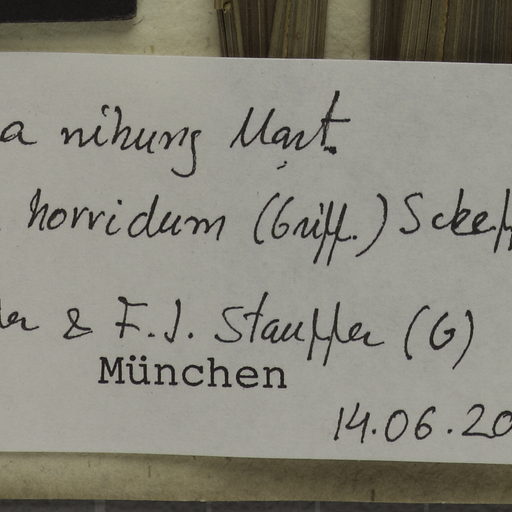 a nihung Mart.
horridum (Griff.) Scheff
& F.J. Stauffer (G)
München
14.06.20